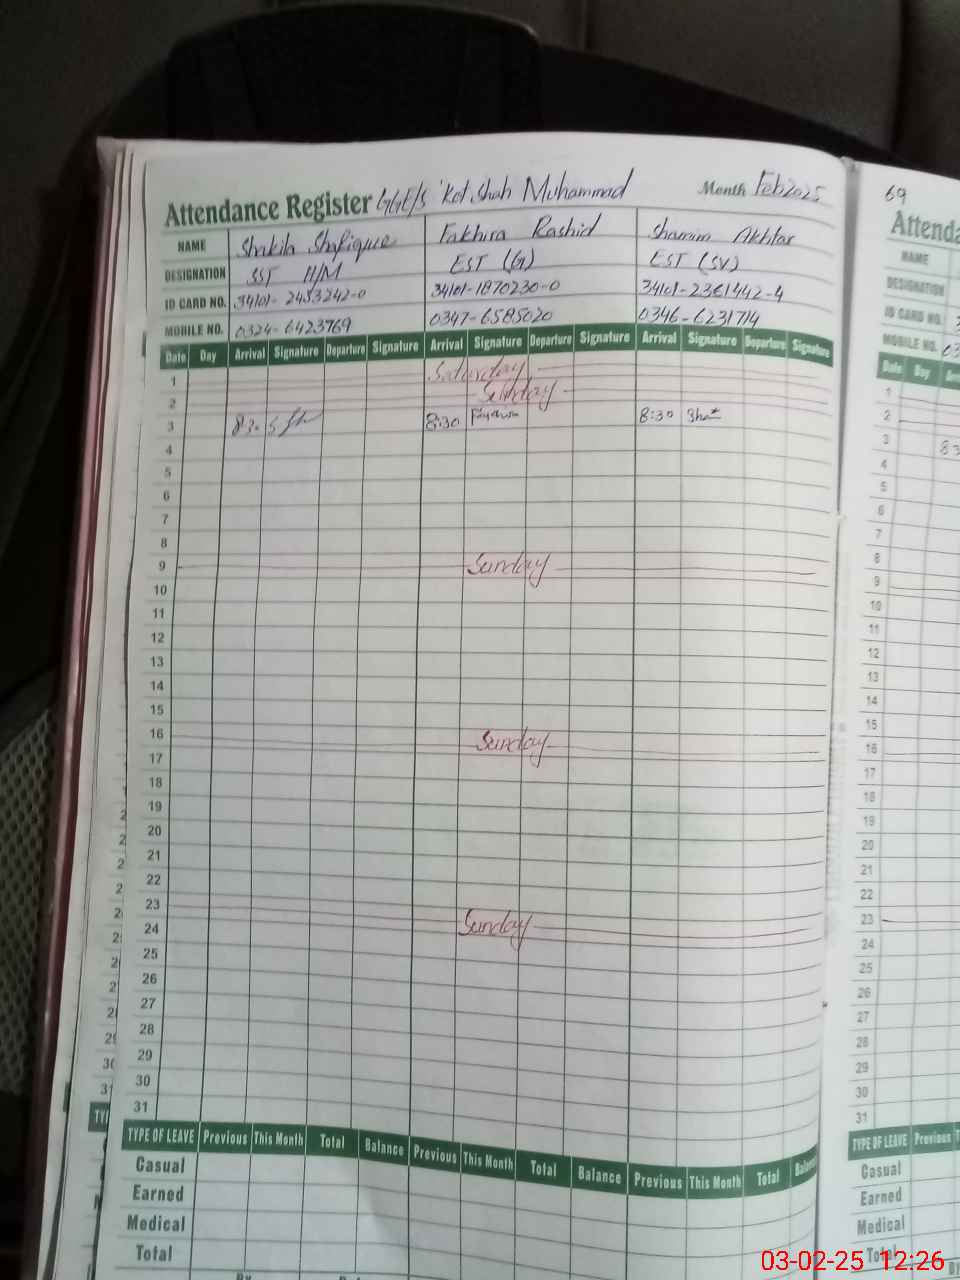 Attendance Register GGE/S Kot Shah Muhammad Month Feb 2025
NAME Shakila Shafique Fakhira Rashid Shamim Akhtar
DESIGNATION SST H/M EST (G) EST (SV)
ID CARD NO. 34101-2453242-0 34101-1870230-0 34101-2361442-4
MOBILE NO. 0324-6423769 0347-6585020 0346-6231714
Date Day Arrival Signature Departure Signature Arrival Signature Departure Signature Arrival Signature Departure Signature
1 Saturday
2 Sunday
3 8:30 8:30 8:30
4
5
6
7
8
9 Sunday
10
11
12
13
14
15
16 Sunday
17
18
19
20
21
22
23 Sunday
24
25
26
27
28
29
30
31
TYPE OF LEAVE Previous This Month Total Balance Previous This Month Total Balance Previous This Month Total
Casual
Earned
Medical
Total
69
Attenda
NAME
DESIGNATION
ID CARD NO.
MOBILE NO. 03
Date Day
1
2
3 8 3
4
5
6
7
8
9
10
11
12
13
14
15
16
17
18
19
20
21
22
23
24
25
26
27
28
29
30
31
TYPE OF LEAVE Previous
Casual
Earned
Medical
Total
03-02-25 12:26